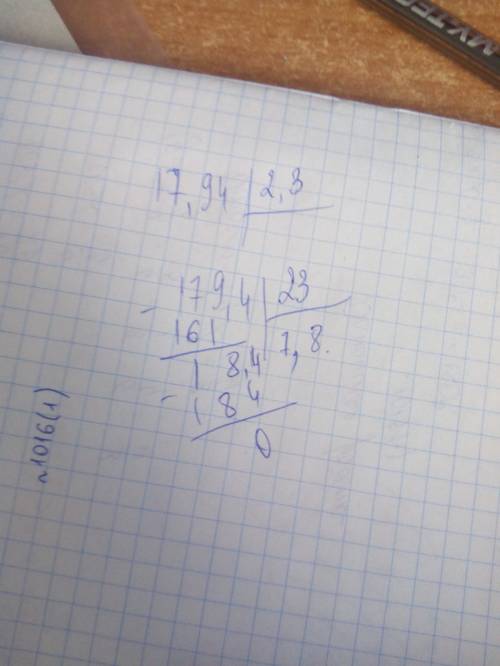 MYTE
17,94 | 2,3
- 179,4 | 23
161 | 7,8.
18,4
- 184
0
№1016(1)